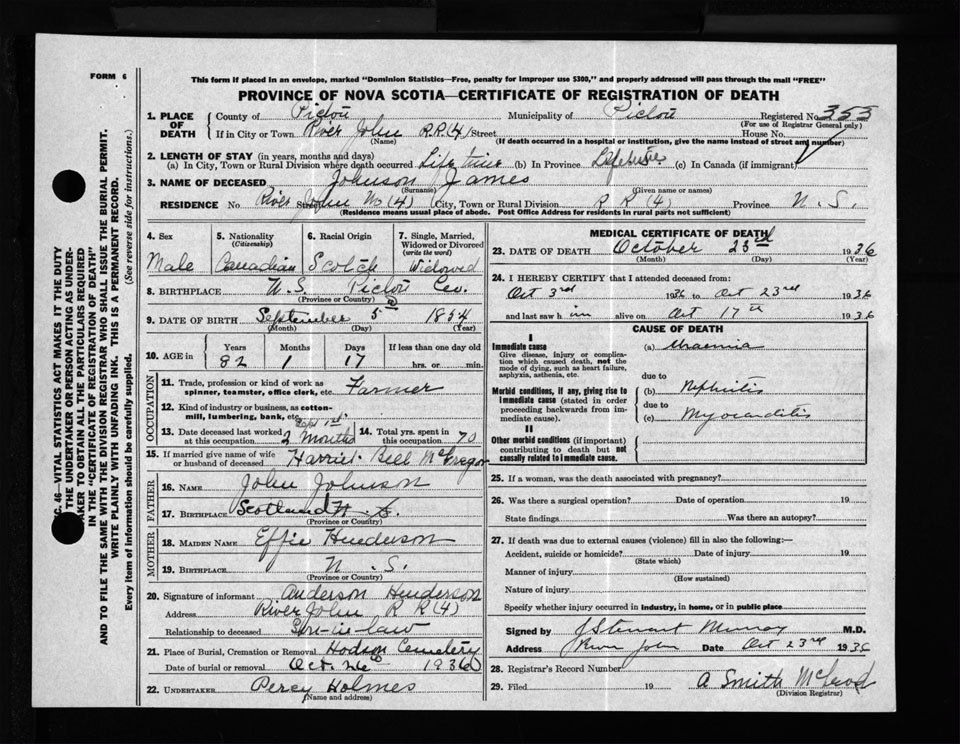 FORM 6
This form if placed in an envelope, marked "Dominion Statistics—Free, penalty for improper use $300," and properly addressed will pass through the mail "FREE"
PROVINCE OF NOVA SCOTIA—CERTIFICATE OF REGISTRATION OF DEATH
1. PLACE OF DEATH County of Pictou Municipality of Pictou Registered No 353
(For use of Registrar General only)
If in City or Town River John R.R.(4) Street House No.
(Name) (If death occurred in a hospital or institution, give the name instead of street and number)
2. LENGTH OF STAY (in years, months and days)
(a) In City, Town or Rural Division where death occurred Life time (b) In Province Life time (c) In Canada (if immigrant)
3. NAME OF DECEASED Johnson James
(Surname) (Given name or names)
RESIDENCE No River Street John No (4) (City, Town or Rural Division R R (4) Province N.S.
(Residence means usual place of abode. Post Office Address for residents in rural parts not sufficient)
4. Sex 5. Nationality (Citizenship) 6. Racial Origin 7. Single, Married, Widowed or Divorced (write the word)
Male Canadian Scotch Widowed
8. BIRTHPLACE N.S. Pictou Co.
(Province or Country)
9. DATE OF BIRTH September 5 1854
(Month) (Day) (Year)
10. AGE in Years Months Days If less than one day old
82 1 17 hrs. or min.
OCCUPATION
11. Trade, profession or kind of work as spinner, teamster, office clerk, etc. Farmer
12. Kind of industry or business, as cotton-mill, lumbering, bank, etc.
Sept 1st
13. Date deceased last worked at this occupation 2 months 14. Total yrs. spent in this occupation 70
15. If married give name of wife or husband of deceased Harriet Bell McGregor
FATHER
16. NAME John Johnson
17. BIRTHPLACE Scotland N.S.
(Province or Country)
MOTHER
18. MAIDEN NAME Effie Henderson
19. BIRTHPLACE N.S.
(Province or Country)
20. Signature of informant Anderson Henderson
Address River John R R (4)
Relationship to deceased Son-in-law
21. Place of Burial, Cremation or Removal Hodson Cemetery
Date of burial or removal Oct. 26 1936
22. UNDERTAKER Percy Holmes
(Name and address)
MEDICAL CERTIFICATE OF DEATH
23. DATE OF DEATH October 23rd 1936
(Month) (Day) (Year)
24. I HEREBY CERTIFY that I attended deceased from:
Oct 3rd 1936 to Oct 23rd 1936
and last saw him alive on Oct 17th 1936
CAUSE OF DEATH
I
Immediate cause
Give disease, injury or complication which caused death, not the mode of dying, such as heart failure, asphyxia, asthenia, etc.
(a) Uraemia
due to
Morbid conditions, if any, giving rise to immediate cause (stated in order proceeding backwards from immediate cause).
(b) Nephritis
due to
(c) Myocarditis
II
Other morbid conditions (if important) contributing to death but not causally related to immediate cause.
25. If a woman, was the death associated with pregnancy?
26. Was there a surgical operation? Date of operation 19
State findings Was there an autopsy?
27. If death was due to external causes (violence) fill in also the following:—
Accident, suicide or homicide? Date of injury 19
(State which)
Manner of injury
(How sustained)
Nature of injury
Specify whether injury occurred in industry, in home, or in public place
Signed by J Stewart Murray M.D.
Address River John Date Oct 23rd 1936
28. Registrar's Record Number
29. Filed 19 A Smith McLeod
(Division Registrar)
C. 46—VITAL STATISTICS ACT MAKES IT THE DUTY
THE UNDERTAKER OR PERSON ACTING AS UNDER-
TAKER TO OBTAIN ALL THE PARTICULARS REQUIRED
IN THE "CERTIFICATE OF REGISTRATION OF DEATH"
AND TO FILE THE SAME WITH THE DIVISION REGISTRAR WHO SHALL ISSUE THE BURIAL PERMIT.
WRITE PLAINLY WITH UNFADING INK. THIS IS A PERMANENT RECORD.
Every item of information should be carefully supplied. (See reverse side for instructions.)